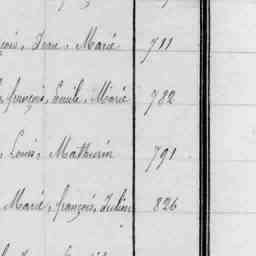 Jean, Marie 711
françois, Emile, Marie 782
Louis, Mathurin 791
Marie, françois, Julien 826